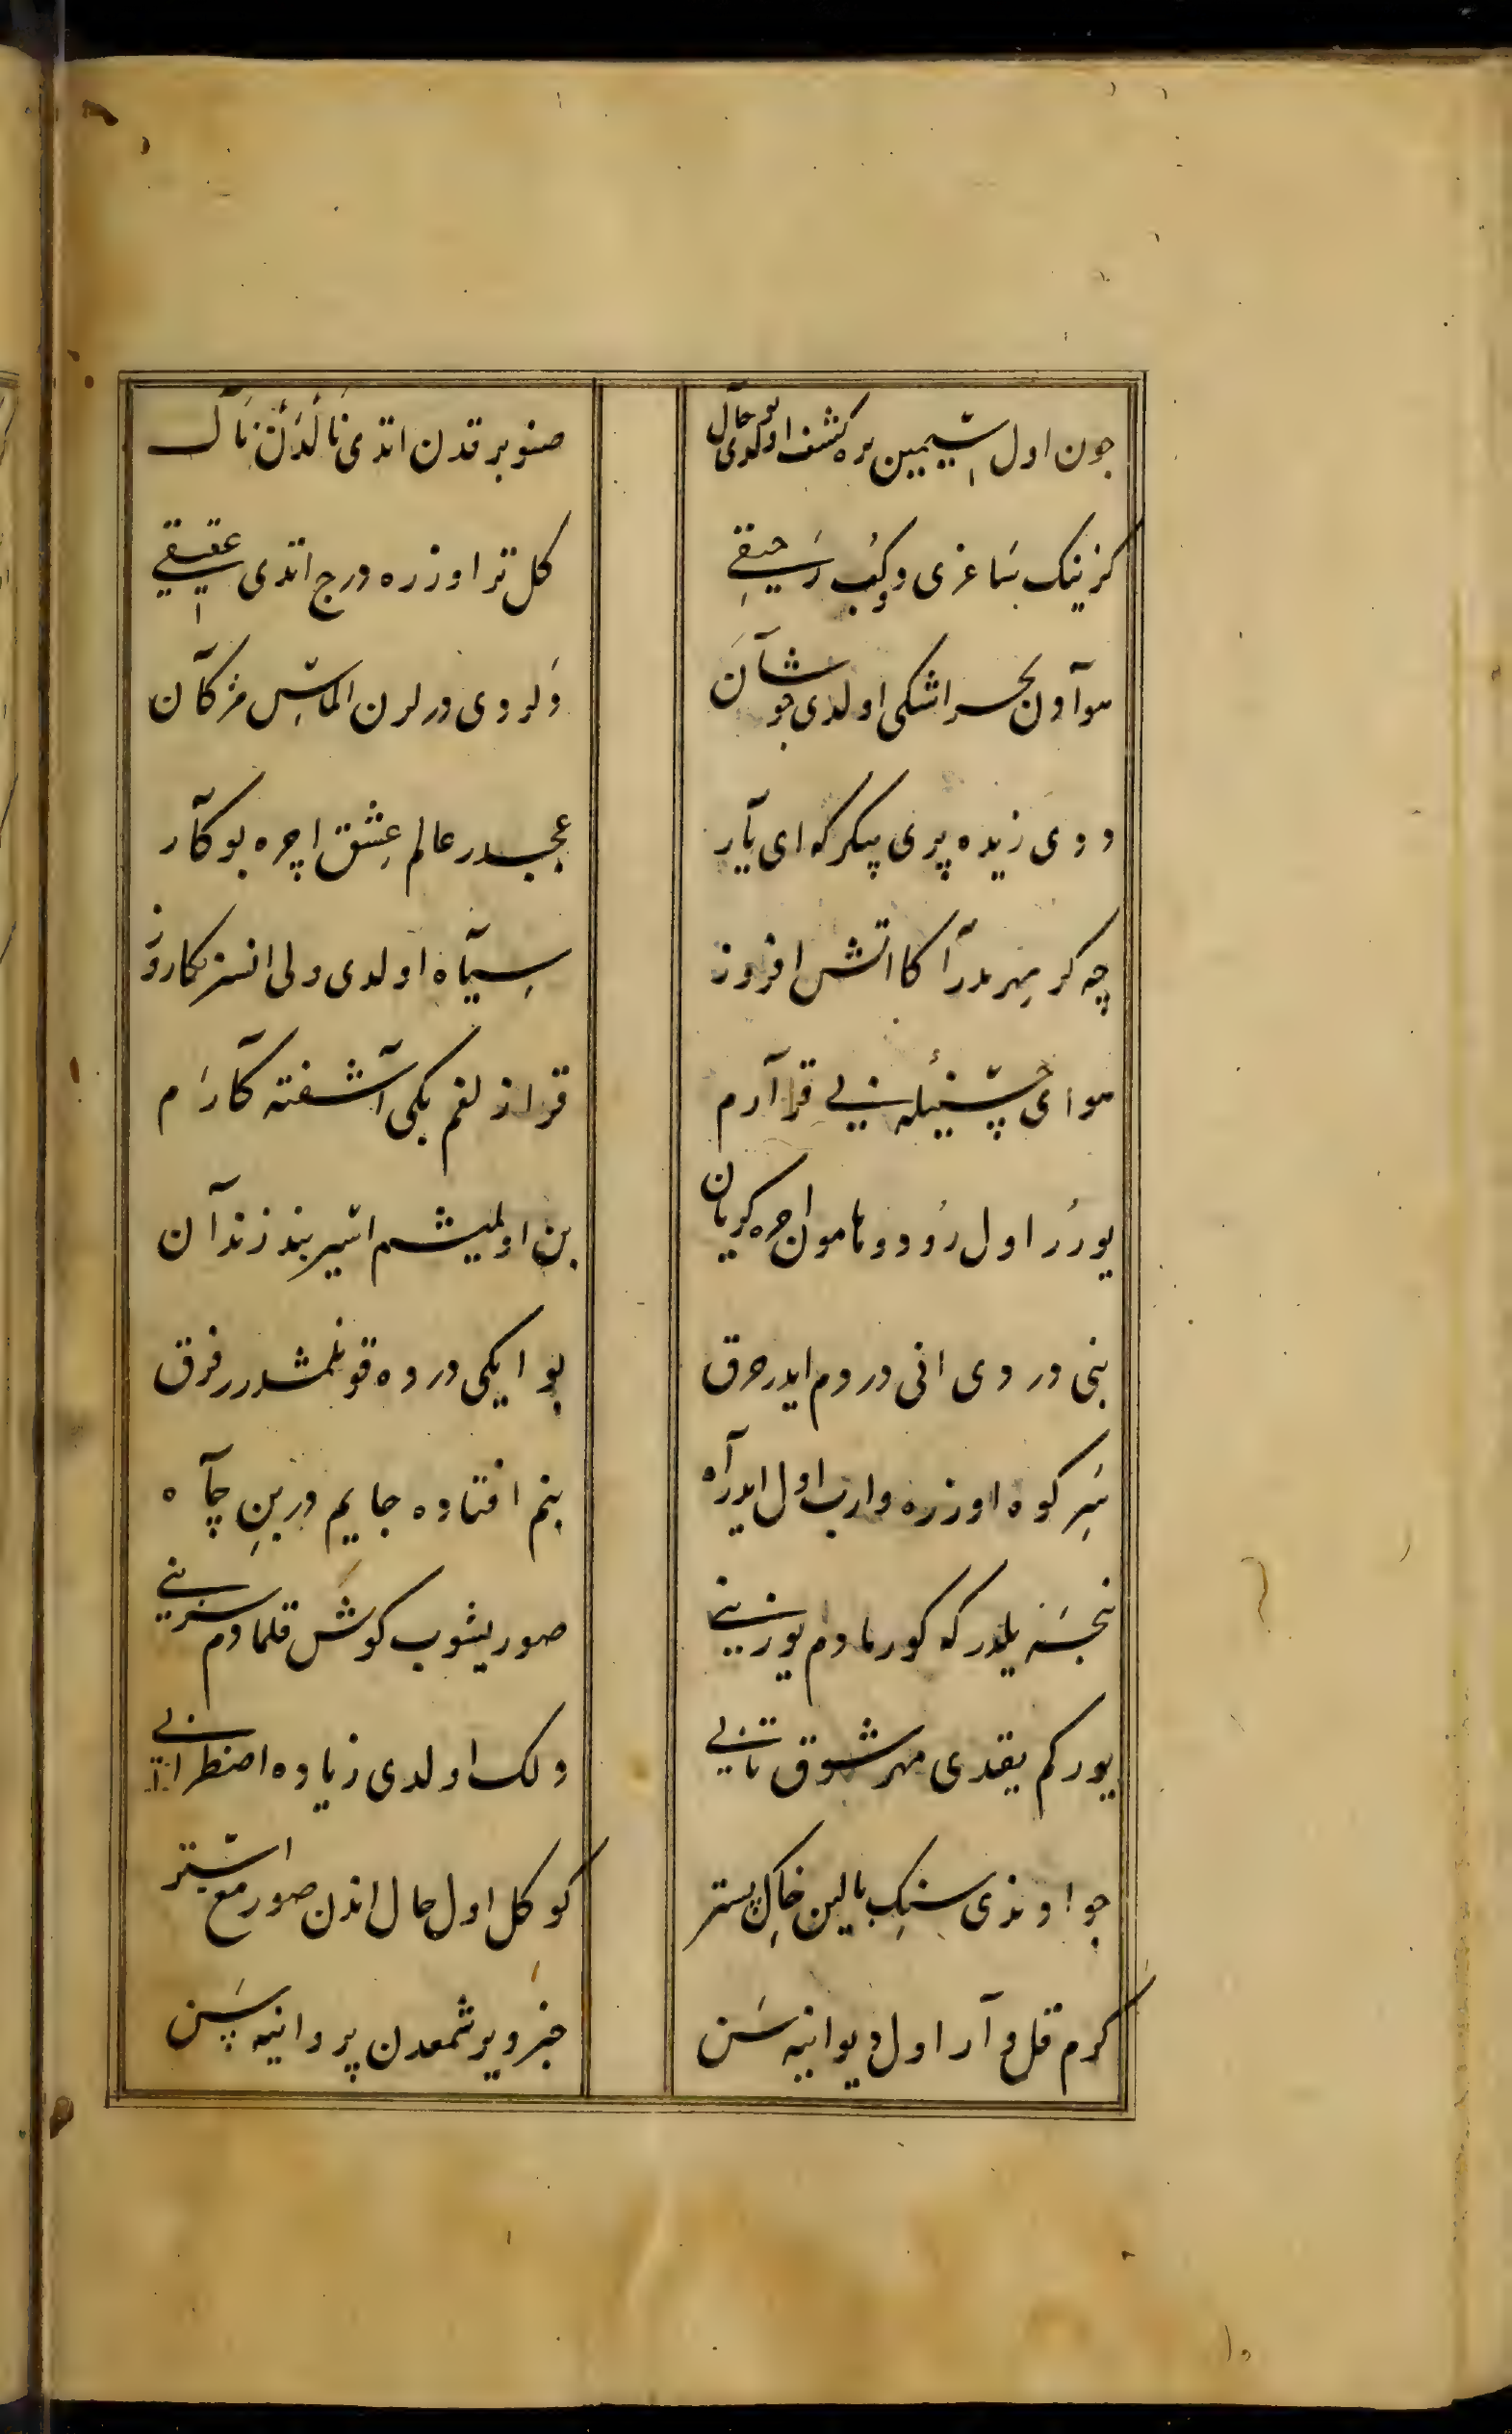 چون اول سیمین بره کشف اولدی بو حال
صنوبر قدن اتدی نالدن نال
کزینک ساغری دوکب رحیقی
کل تر اوزره درج اتدی عقیقی
هوادن بحر اشکی اولدی جوشان
دلردی درلرن الماس مژکان
ددی زیده پری پیکر که ای یار
عجبدر عالم عشق اچره بو کار
چه کر مهرمدر آکا اتش افروز
سیاه اولدی ولی انسز بکا روز
هوای چشنیله بی قرارم
قرا زلفم بکی آشفته کارم
یورر اول رود و هامون اچره کریان
بن اولمیشم اسیر بند زندان
بنی دردی انی دردم ایدر حرق
بو ایکی درده قونلمشدر فرق
سر کوه اوزره وارب اول ایدر آه
بنم افتاده جایم در بن چاه
نجسنه یلدر که کورمادم یوزینی
صوریشوب کوش قلمادم سوزینی
یورکم یقدی مهر شوق تابی
ولک اولدی زیاده اضطرابی
چو اوندی سنک بالین خاک بستر
کوکل اول حال اندن صورمغ استر
کرم قل وار اول دیوانیه سن
خبر ویر شمعدن پروانیه سن